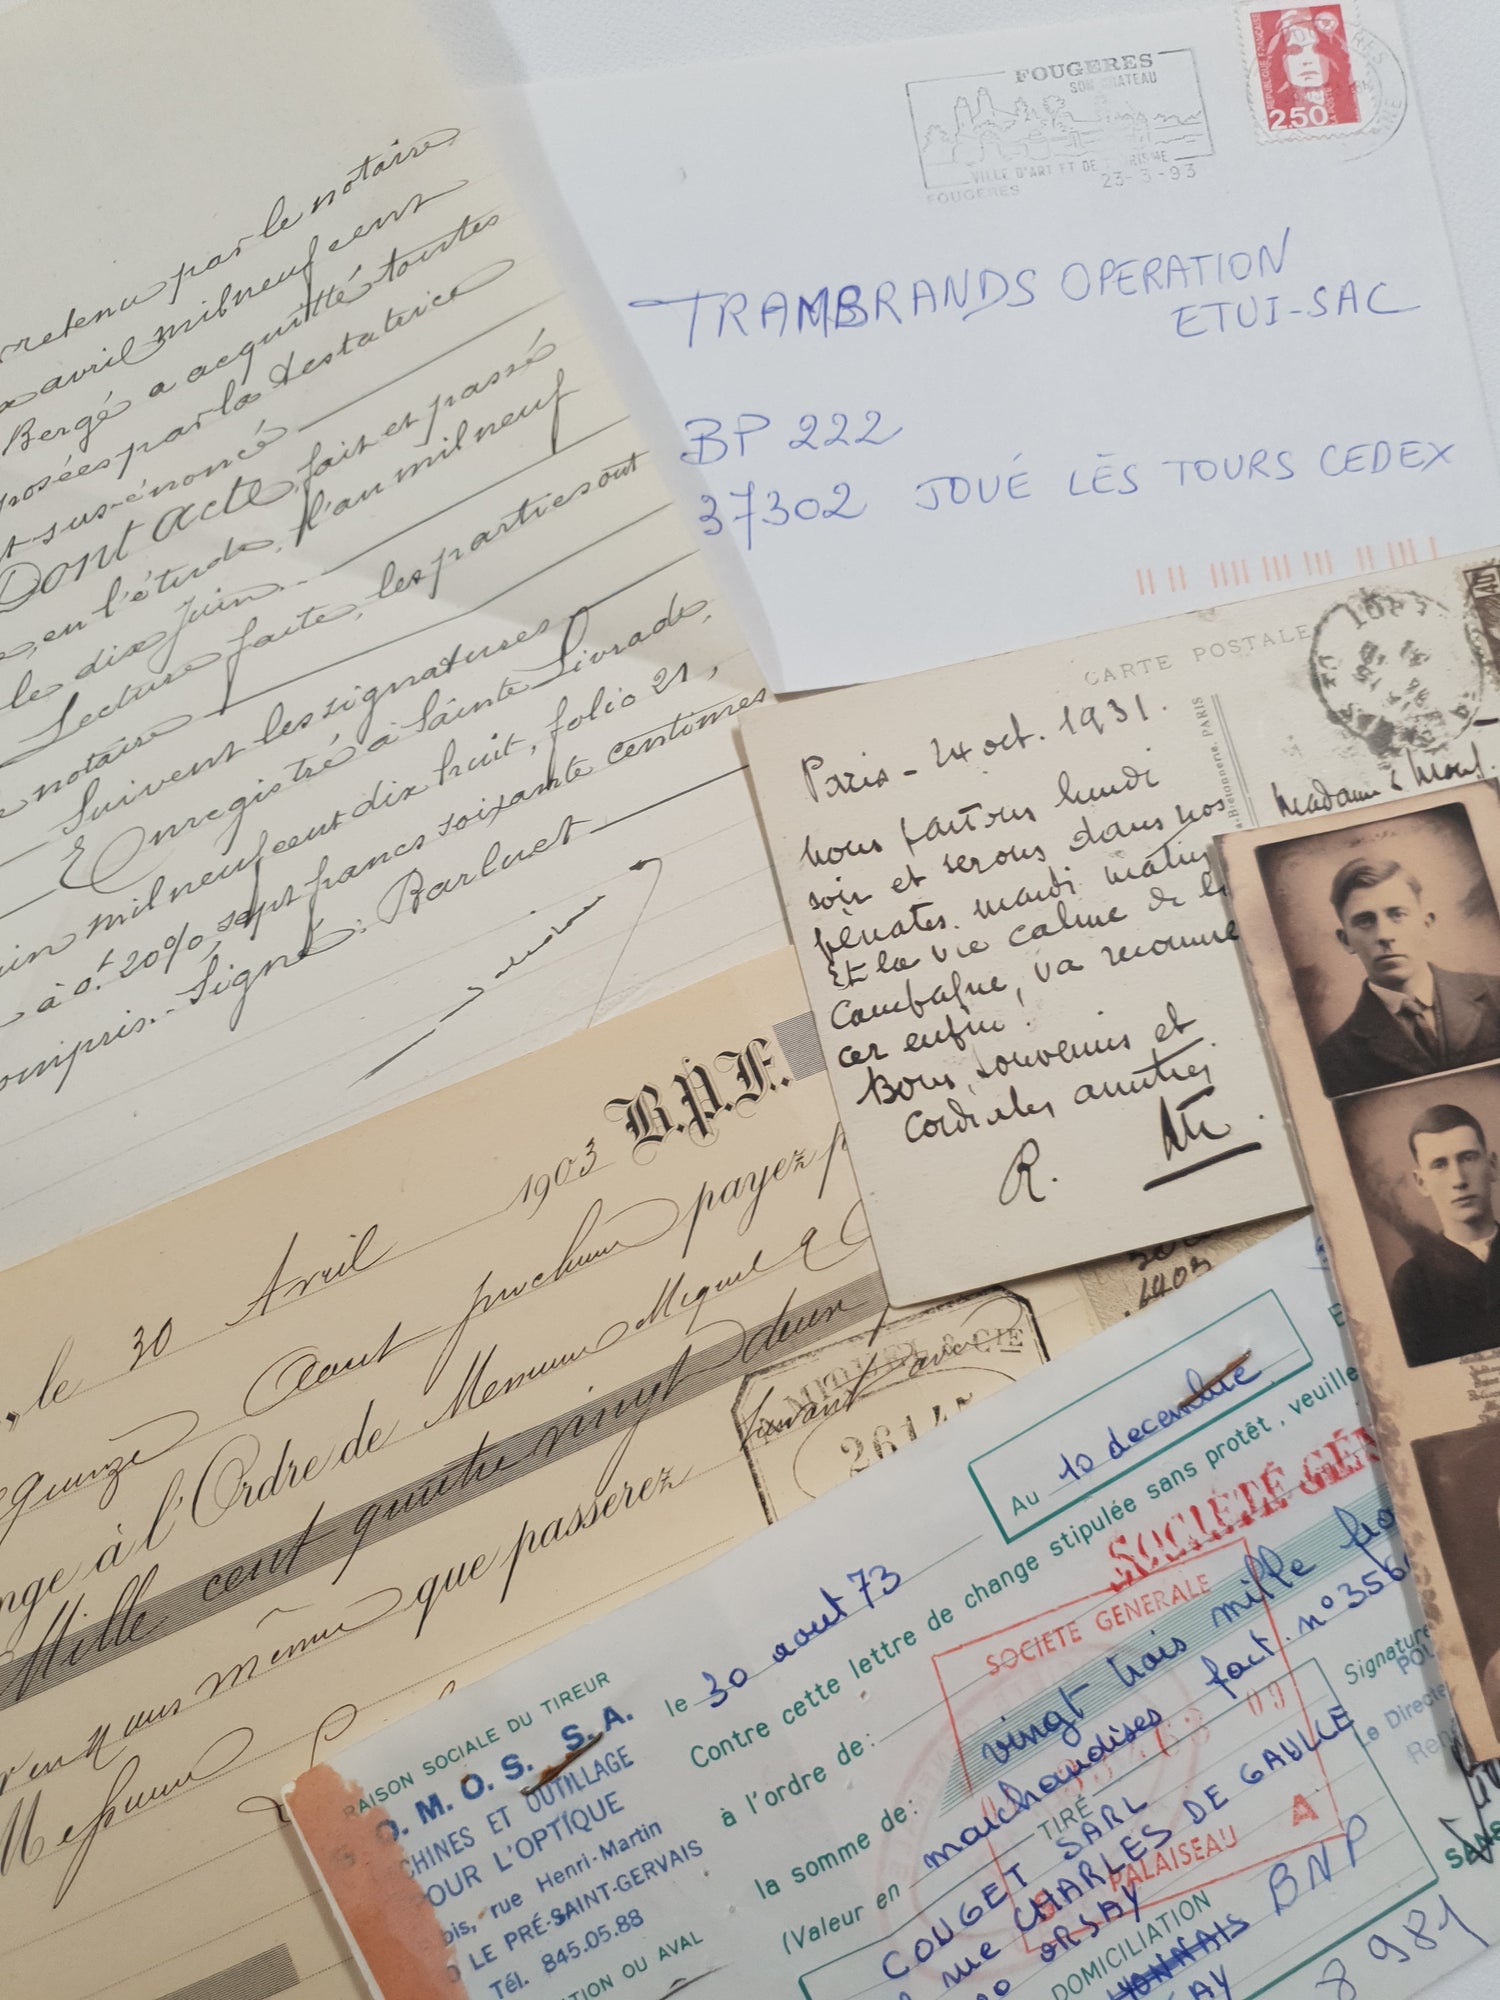 retenu par le notaire
avril mil neuf cent
Bergé a acquitté toutes
posées par la testatrice
sus-énoncé
Dont acte, fait et passé
en l'étude, l'an mil neuf
le dix Juin
Lecture faite, les parties ont
notaire
Suivent les signatures
Enregistré à Sainte Livrade,
mil neuf cent dix huit, folio 21,
à 0.f 20% sept francs soixante centimes
compris.- Signé: Barluet
FOUGERES
SON CHATEAU
VILLE D'ART ET DE TOURISME
FOUGERES
23-3-93
REPUBLIQUE FRANÇAISE
2,50
LA POSTE
TRAMBRANDS OPERATION
ETUI-SAC
BP 222
37302 JOUÉ LÈS TOURS CEDEX
CARTE POSTALE
PARIS
Paris - 24 oct. 1931.
Nous partons lundi
soir et serons dans nos
pénates mardi matin
Et la vie calme de la
campagne, va recommen
cer enfin.
Bons souvenirs et
cordiales amitiés
R.
Madame &
le 30 Avril 1903 B.P.F.
quinze Aout prochain payez
à l'Ordre de Messieurs Miquel &
Mille cent quatre vingt deux
que passerez suivant avis
& CIE
1903
Au 10 decembre
le 30 aout 73
Contre cette lettre de change stipulée sans protêt, veuille
SOCIÉTÉ GÉN
à l'ordre de:
SOCIETE GENERALE
la somme de: vingt trois mille
(Valeur en marchandises fact. n° 356
TIRÉ
COUGET SARL
rue CHARLES DE GAULLE
ORSAY
PALAISEAU
A
DOMICILIATION
BNP
8981
Signature
RAISON SOCIALE DU TIREUR
O. M. O. S. S. A.
CHINES ET OUTILLAGE
OUR L'OPTIQUE
bis, rue Henri-Martin
LE PRÉ-SAINT-GERVAIS
Tél. 845.05.88
TION OU AVAL
Le Directe